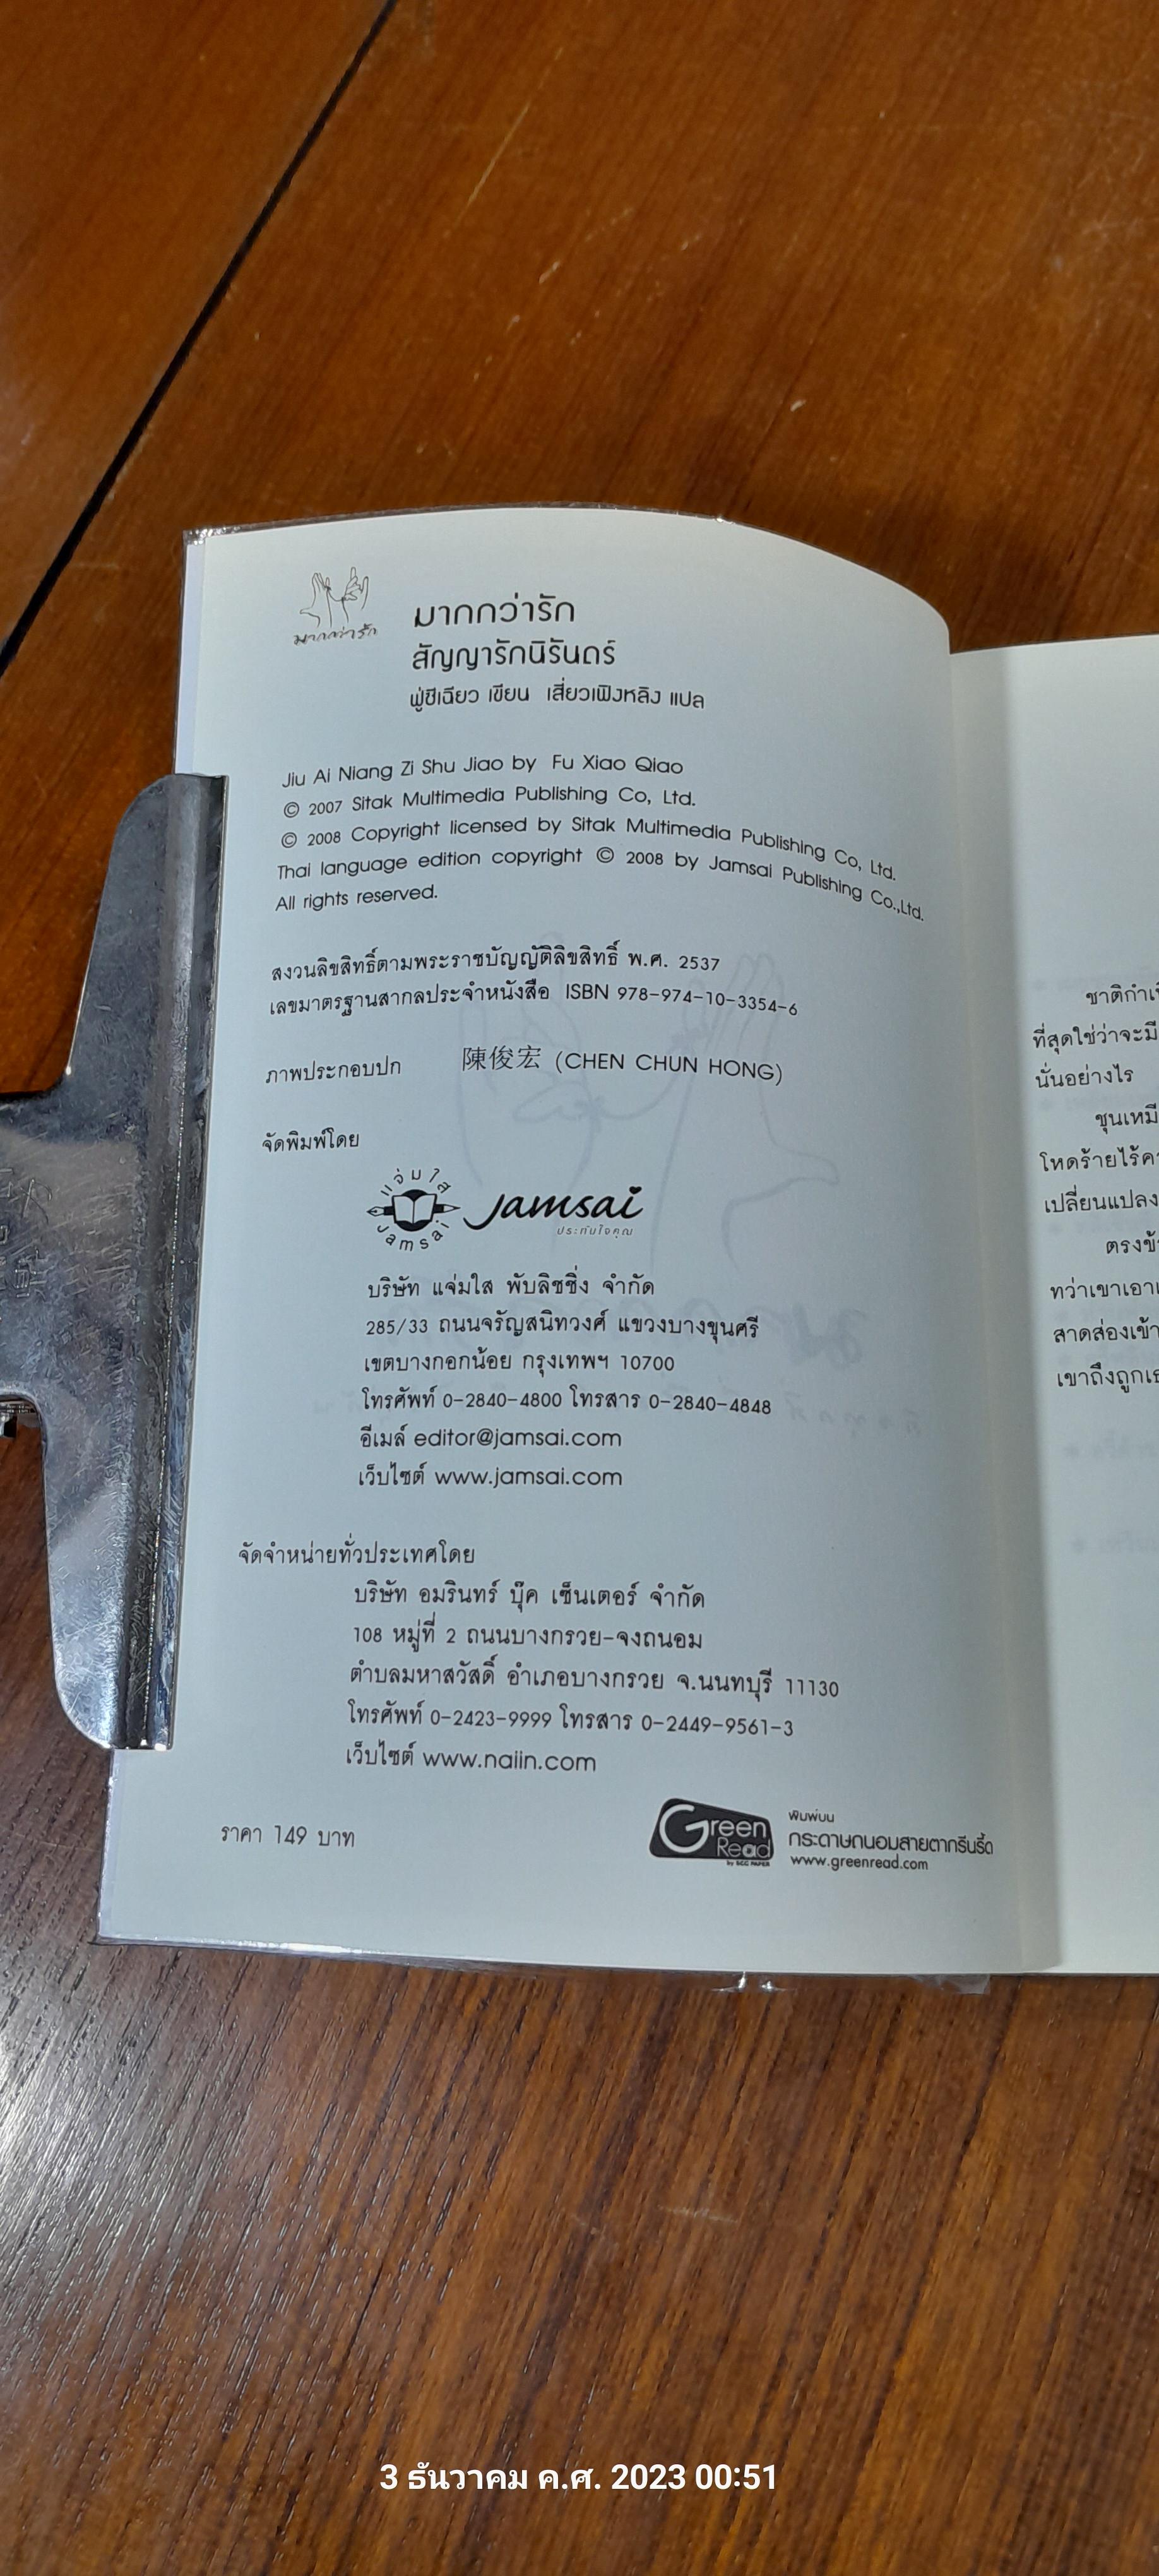 มากกว่ารัก
มากกว่ารัก
สัญญารักนิรันดร์
ฟู่ชีเฉียว เขียน เสี่ยวเฟิงหลิง แปล
Jiu Ai Niang Zi Shu Jiao by Fu Xiao Qiao
© 2007 Sitak Multimedia Publishing Co, Ltd.
© 2008 Copyright licensed by Sitak Multimedia Publishing Co, Ltd.
Thai language edition copyright © 2008 by Jamsai Publishing Co.,Ltd.
All rights reserved.
สงวนลิขสิทธิ์ตามพระราชบัญญัติลิขสิทธิ์ พ.ศ. 2537
เลขมาตรฐานสากลประจำหนังสือ ISBN 978-974-10-3354-6
ภาพประกอบปก 陳俊宏 (CHEN CHUN HONG)
จัดพิมพ์โดย
แจ่มใส
Jamsai
Jamsai
ประทับใจคุณ
บริษัท แจ่มใส พับลิชชิ่ง จำกัด
285/33 ถนนจรัญสนิทวงศ์ แขวงบางขุนศรี
เขตบางกอกน้อย กรุงเทพฯ 10700
โทรศัพท์ 0-2840-4800 โทรสาร 0-2840-4848
อีเมล์ editor@jamsai.com
เว็บไซต์ www.jamsai.com
จัดจำหน่ายทั่วประเทศโดย
บริษัท อมรินทร์ บุ๊ค เซ็นเตอร์ จำกัด
108 หมู่ที่ 2 ถนนบางกรวย-จงถนอม
ตำบลมหาสวัสดิ์ อำเภอบางกรวย จ.นนทบุรี 11130
โทรศัพท์ 0-2423-9999 โทรสาร 0-2449-9561-3
เว็บไซต์ www.naiin.com
ราคา 149 บาท
Green
Read
by SCG PAPER
พิมพ์บน
กระดาษถนอมสายตากรีนรี้ด
www.greenread.com
ชาติกำเ
ที่สุดใช่ว่าจะมี
นั่นอย่างไร
ชุนเหมี
โหดร้ายไร้ค
เปลี่ยนแปลง
ตรงข้
ทว่าเขาเอา
สาดส่องเข้า
เขาถึงถูกเ
3 ธันวาคม ค.ศ. 2023 00:51